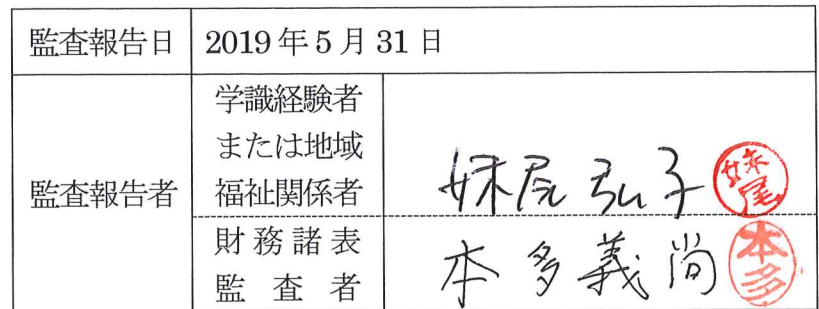 監査報告日 2019年5月31日
学識経験者
または地域
監査報告者 福祉関係者 妹尾弘子 妹尾
財務諸表
監査者 本多義尚 本多